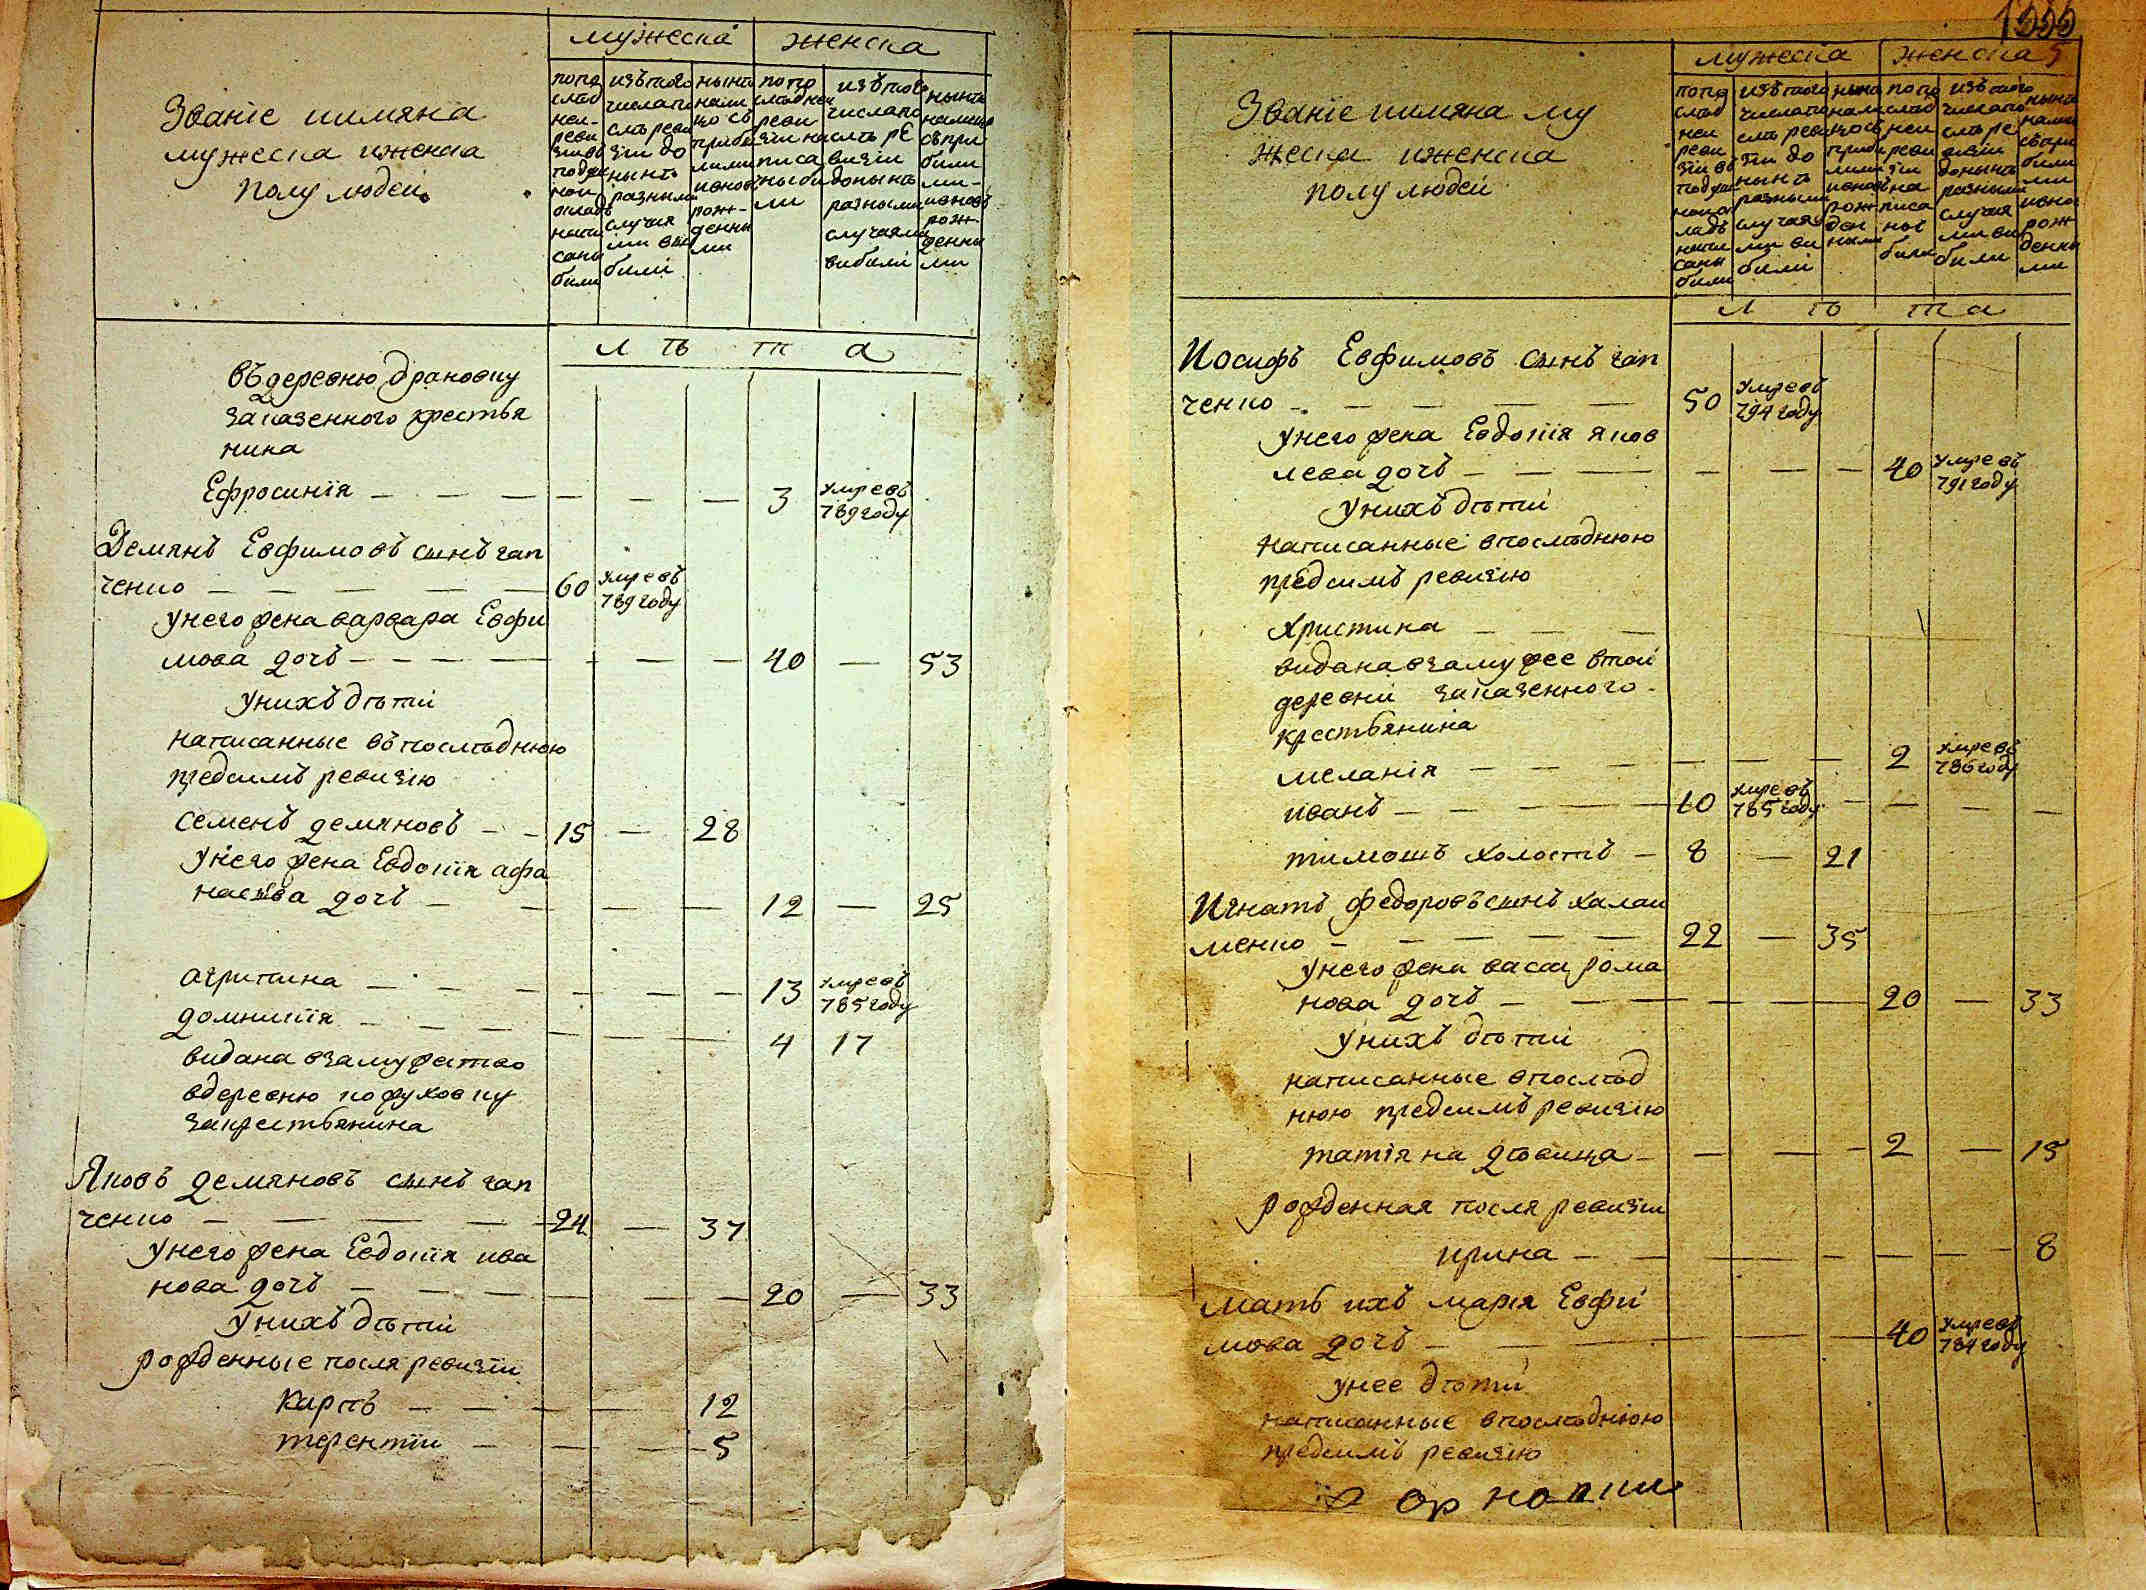 мужеска женска
Званіе иимяна
мужеска иженска
полу людей
попо
слѣд
ней
реви
зіи въ
подуш
ной
окладъ
напи
саны
были
изъ того
числа по
слѣ реви
зіи до
нынѣ
разными
случая
ми вы
были
нынѣ
нали
цо съ
прибы
лими
иновъ
рож-
денны
ми
по по
слѣдней
реви
зіи на
писа
ны бы
ли
изъ того
числа по
слѣ ре
визіи
донынѣ
разными
случаями
выбыли
нынѣ
налицо
съ при
были
ми-
иновъ
рож-
денны
ми
л ѣ т а
въ деревню драновку
заказенного крестья
нина
Ефросинія — — — — — — 3 умре въ
789 году
Демянъ Евфимовъ сынъ гап
ченко — — — — — 60 умре въ
789 году
унего жена варвара Евфи
мова дочь — — — — — — — 40 — 53
унихъ дѣтей
написанные въпослѣднюю
предсимъ ревизію
семенъ демяновъ — — 15 — 28
унего жена Евдокія афа
насіева дочь — — — — 12 — 25
агрипина — — — — — — 13 умре въ
785 году
домникія — — — — — — 4 17
видана взамужество
вдеревню кожуховку
закрестьянина
Яковъ демяновъ сынъ гап
ченко — — — — — 24 — 37
унего жена Евдокія ива
нова дочь — — — — — — 20 — 33
унихъ дѣтей
рожденные посля ревизіи
карпъ — — — — 12
терентій — — — — 5
1555
мужеска женска 5
Званіе иимяна му
жеска иженска
полу людей
попо
слѣд
ней
реви
зіи въ
подуш
ной ок
ладъ
напи
саны
были
изъ того
числа по
слѣ реви
зіи до
нынѣ
разными
случая
ми вы
были
нынѣ
нали
цо съ
прибы
лими
иновъ
рож
ден
ными
по по
слѣд
ней
реви
зіи
на
писа
ны
были
изъ того
числа по
слѣ ре
визіи
донынѣ
разными
случая
ми вы
были
нынѣ
нали
съ при
были
ми
иново
рож
денны
ми
л ѣ т а
Иосифъ Евфимовъ сынъ гап
ченко — — — — — 50 умре въ
794 году
унего жена Евдокія яков
лева дочь — — — — — — 40 умре въ
791 году
унихъ дѣтей
написанные впослѣднюю
предсимъ ревизію
христина — — —
видана взамужее втой
деревни заказенного
крестьянина
меланія — — — — — — — 2 умре въ
786 году
иванъ — — — — — 10 умре въ
785 году — — — —
тимошъ холостъ — 8 — 21
Игнатъ федоровъ сынъ халам
менко — — — — — 22 — 35
унего жена васса рома
нова дочь — — — — — — 20 — 33
унихъ дѣтей
написанные впослѣд
нюю предсимъ ревизію
татіяна дѣвица — — — — 2 — 15
рожденная посля ревизіи
ирина — — — — — — — 8
мать ихъ марія Евфи
мова дочь — — — — — 40 умре въ
784 году
унее дѣтей
написанные впослѣднюю
предсимъ ревизію